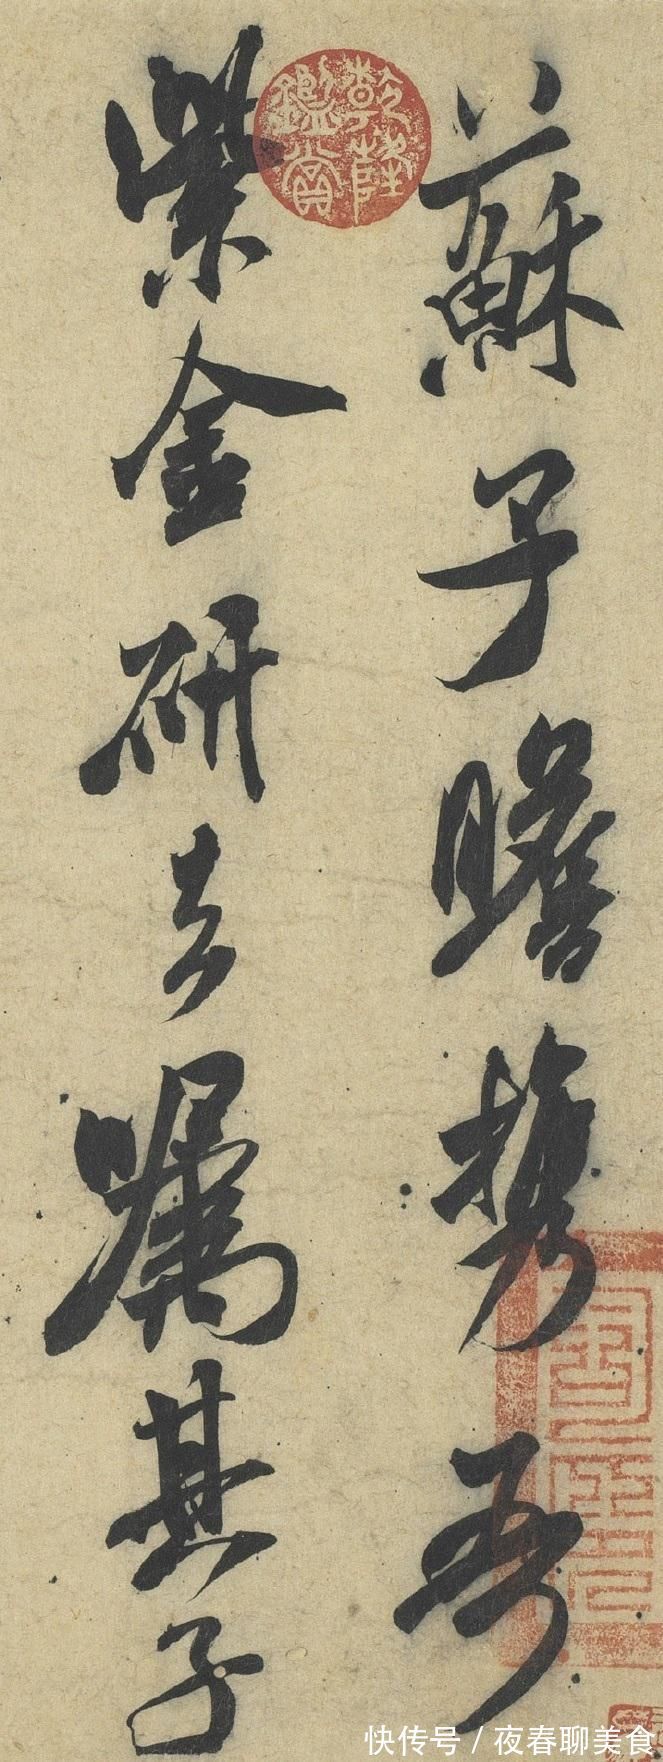 蘇子瞻携吾
紫金研去嘱其子
乾隆鑑賞
快传号／夜春聊美食